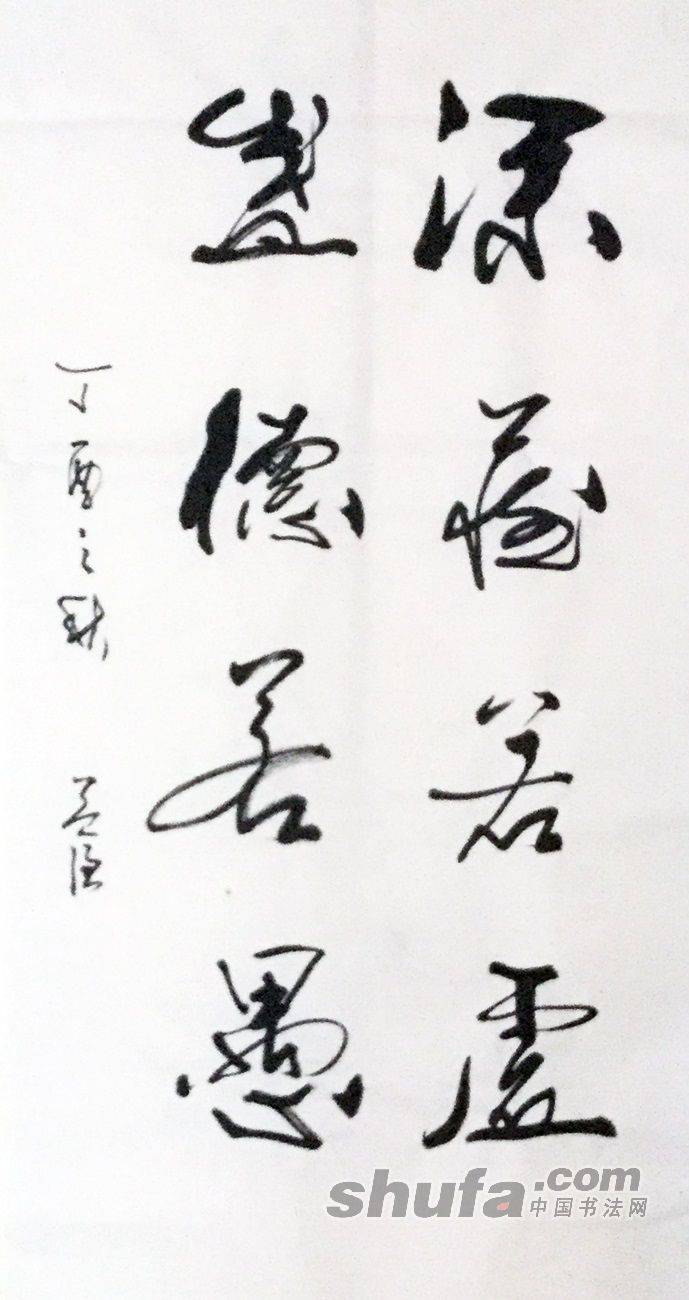 深藏若虚
盛德若愚
丁酉之秋
shufa.com
中国书法网